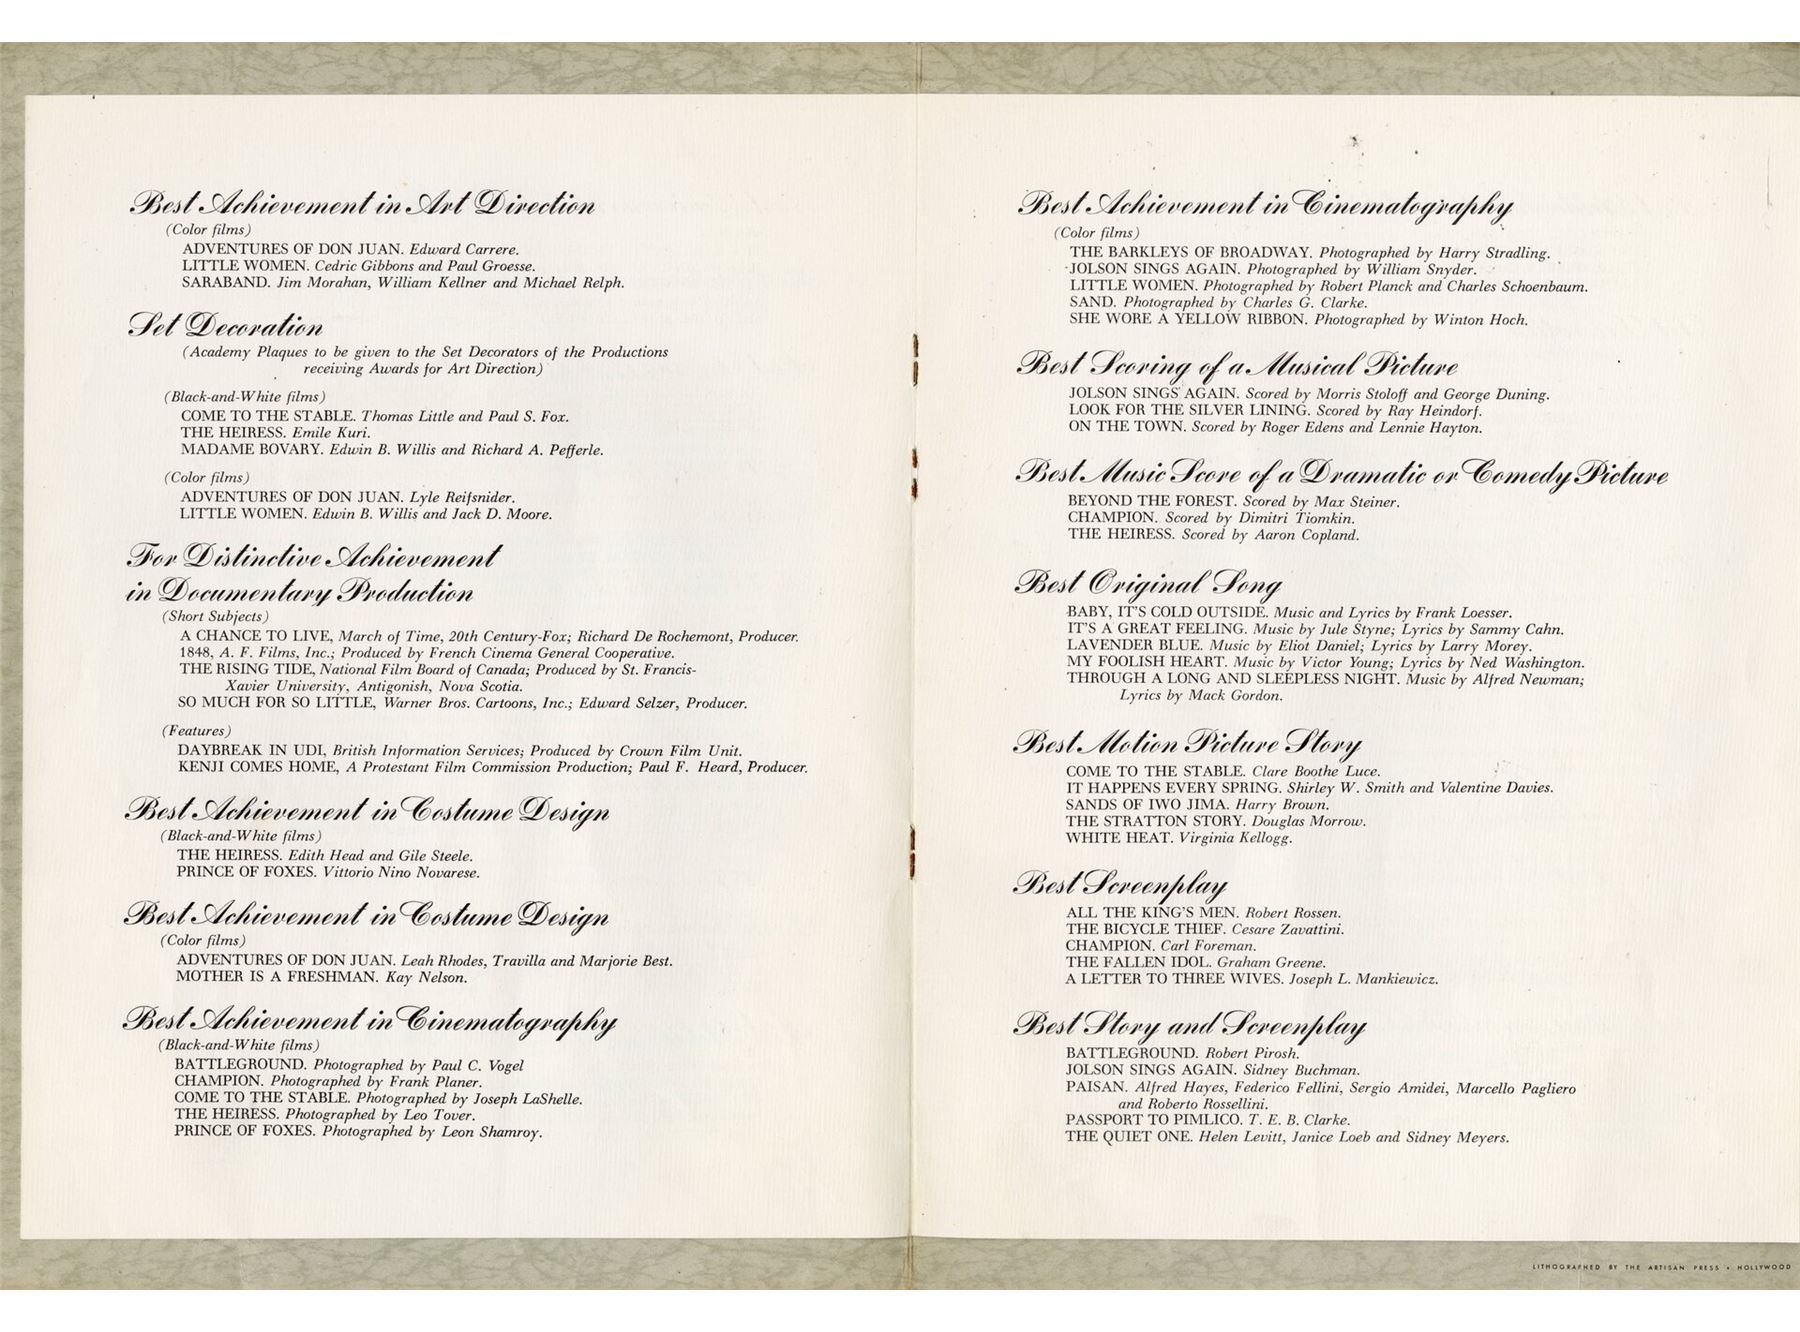 Best Achievement in Art Direction
(Color films)
ADVENTURES OF DON JUAN. Edward Carrere.
LITTLE WOMEN. Cedric Gibbons and Paul Groesse.
SARABAND. Jim Morahan, William Kellner and Michael Relph.
Set Decoration
(Academy Plaques to be given to the Set Decorators of the Productions
receiving Awards for Art Direction)
(Black-and-White films)
COME TO THE STABLE. Thomas Little and Paul S. Fox.
THE HEIRESS. Emile Kuri.
MADAME BOVARY. Edwin B. Willis and Richard A. Pefferle.
(Color films)
ADVENTURES OF DON JUAN. Lyle Reifsnider.
LITTLE WOMEN. Edwin B. Willis and Jack D. Moore.
For Distinctive Achievement
in Documentary Production
(Short Subjects)
A CHANCE TO LIVE, March of Time, 20th Century-Fox; Richard De Rochemont, Producer.
1848, A. F. Films, Inc.; Produced by French Cinema General Cooperative.
THE RISING TIDE, National Film Board of Canada; Produced by St. Francis-
Xavier University, Antigonish, Nova Scotia.
SO MUCH FOR SO LITTLE, Warner Bros. Cartoons, Inc.; Edward Selzer, Producer.
(Features)
DAYBREAK IN UDI, British Information Services; Produced by Crown Film Unit.
KENJI COMES HOME, A Protestant Film Commission Production; Paul F. Heard, Producer.
Best Achievement in Costume Design
(Black-and-White films)
THE HEIRESS. Edith Head and Gile Steele.
PRINCE OF FOXES. Vittorio Nino Novarese.
Best Achievement in Costume Design
(Color films)
ADVENTURES OF DON JUAN. Leah Rhodes, Travilla and Marjorie Best.
MOTHER IS A FRESHMAN. Kay Nelson.
Best Achievement in Cinematography
(Black-and-White films)
BATTLEGROUND. Photographed by Paul C. Vogel
CHAMPION. Photographed by Frank Planer.
COME TO THE STABLE. Photographed by Joseph LaShelle.
THE HEIRESS. Photographed by Leo Tover.
PRINCE OF FOXES. Photographed by Leon Shamroy.
Best Achievement in Cinematography
(Color films)
THE BARKLEYS OF BROADWAY. Photographed by Harry Stradling.
JOLSON SINGS AGAIN. Photographed by William Snyder.
LITTLE WOMEN. Photographed by Robert Planck and Charles Schoenbaum.
SAND. Photographed by Charles G. Clarke.
SHE WORE A YELLOW RIBBON. Photographed by Winton Hoch.
Best Scoring of a Musical Picture
JOLSON SINGS AGAIN. Scored by Morris Stoloff and George Duning.
LOOK FOR THE SILVER LINING. Scored by Ray Heindorf.
ON THE TOWN. Scored by Roger Edens and Lennie Hayton.
Best Music Score of a Dramatic or Comedy Picture
BEYOND THE FOREST. Scored by Max Steiner.
CHAMPION. Scored by Dimitri Tiomkin.
THE HEIRESS. Scored by Aaron Copland.
Best Original Song
BABY, IT'S COLD OUTSIDE. Music and Lyrics by Frank Loesser.
IT'S A GREAT FEELING. Music by Jule Styne; Lyrics by Sammy Cahn.
LAVENDER BLUE. Music by Eliot Daniel; Lyrics by Larry Morey.
MY FOOLISH HEART. Music by Victor Young; Lyrics by Ned Washington.
THROUGH A LONG AND SLEEPLESS NIGHT. Music by Alfred Newman;
Lyrics by Mack Gordon.
Best Motion Picture Story
COME TO THE STABLE. Clare Boothe Luce.
IT HAPPENS EVERY SPRING. Shirley W. Smith and Valentine Davies.
SANDS OF IWO JIMA. Harry Brown.
THE STRATTON STORY. Douglas Morrow.
WHITE HEAT. Virginia Kellogg.
Best Screenplay
ALL THE KING'S MEN. Robert Rossen.
THE BICYCLE THIEF. Cesare Zavattini.
CHAMPION. Carl Foreman.
THE FALLEN IDOL. Graham Greene.
A LETTER TO THREE WIVES. Joseph L. Mankiewicz.
Best Story and Screenplay
BATTLEGROUND. Robert Pirosh.
JOLSON SINGS AGAIN. Sidney Buchman.
PAISAN. Alfred Hayes, Federico Fellini, Sergio Amidei, Marcello Pagliero
and Roberto Rossellini.
PASSPORT TO PIMLICO. T. E. B. Clarke.
THE QUIET ONE. Helen Levitt, Janice Loeb and Sidney Meyers.
LITHOGRAPHED BY THE ARTISAN PRESS • HOLLYWOOD